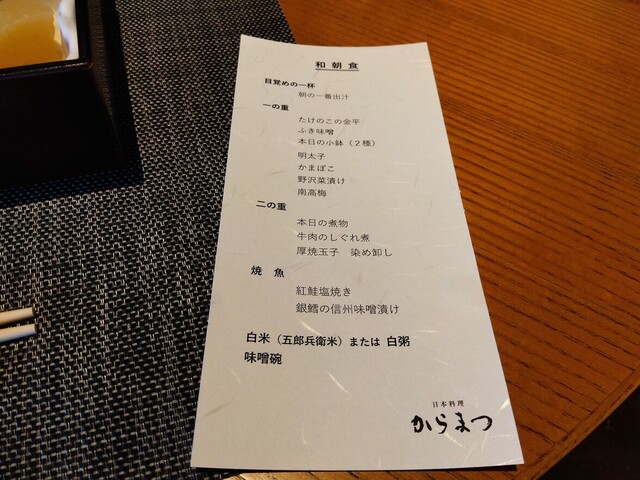 和朝食
目覚めの一杯
朝の一番出汁
一の重
たけのこの金平
ふき味噌
本日の小鉢（２種）
明太子
かまぼこ
野沢菜漬け
南高梅
二の重
本日の煮物
牛肉のしぐれ煮
厚焼玉子　染め卸し
焼　魚
紅鮭塩焼き
銀鱈の信州味噌漬け
白米（五郎兵衛米）または 白粥
味噌碗
日本料理
からまつ